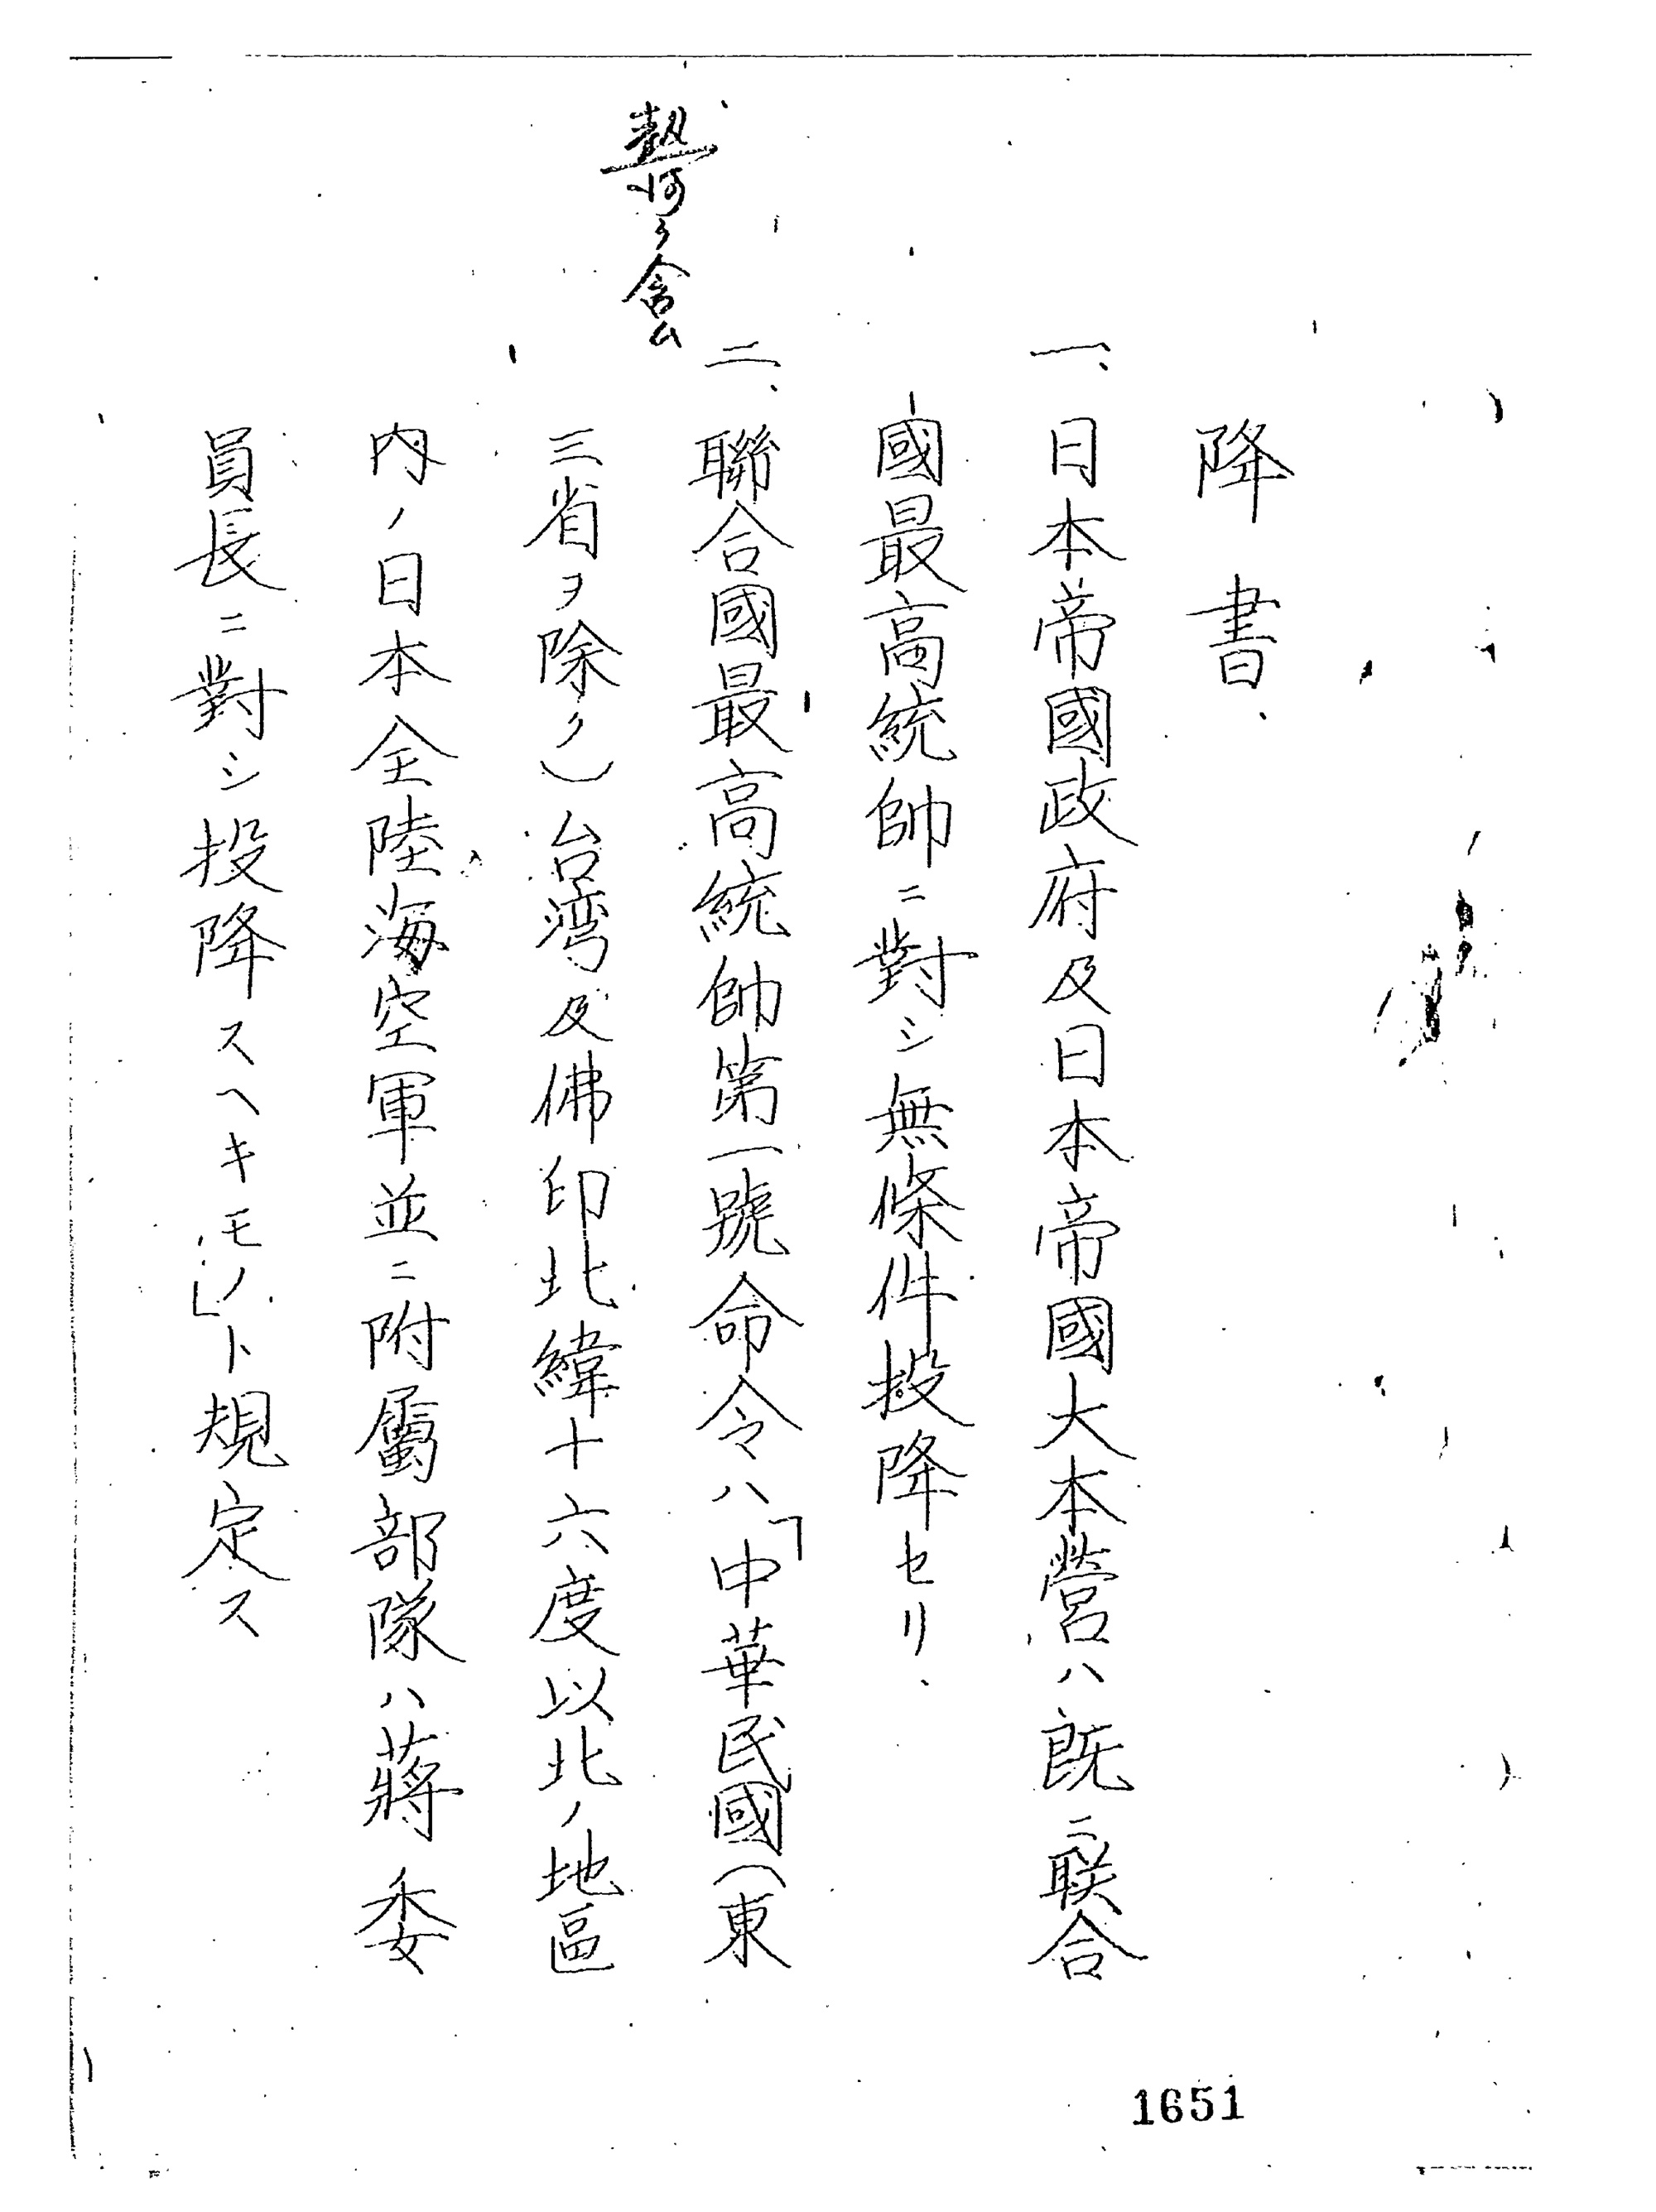 降書、
一、日本帝國政府及日本帝國大本営ハ既ニ联合
國最高統帥ニ對シ無條件投降セリ、
熱河ヲ含ム
二、聯合國最高統帥第一號命令ハ「中華民國（東
三省ヲ除ク）台湾及佛印北緯十六度以北ノ地區
内ノ日本全陸海空軍並ニ附屬部隊ハ蔣委
員長ニ對シ投降スヘキモノ」ト規定ス
1651